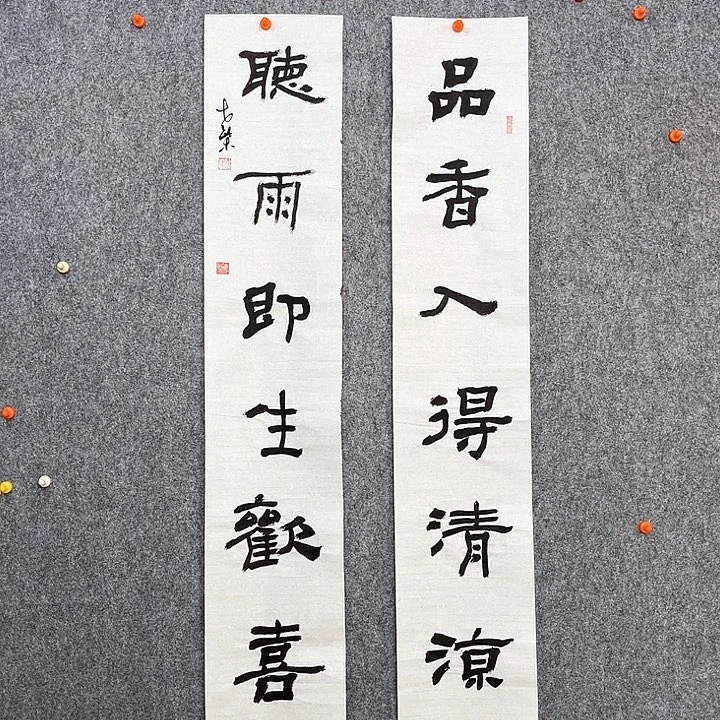 品香入得清涼
聽雨即生歡喜